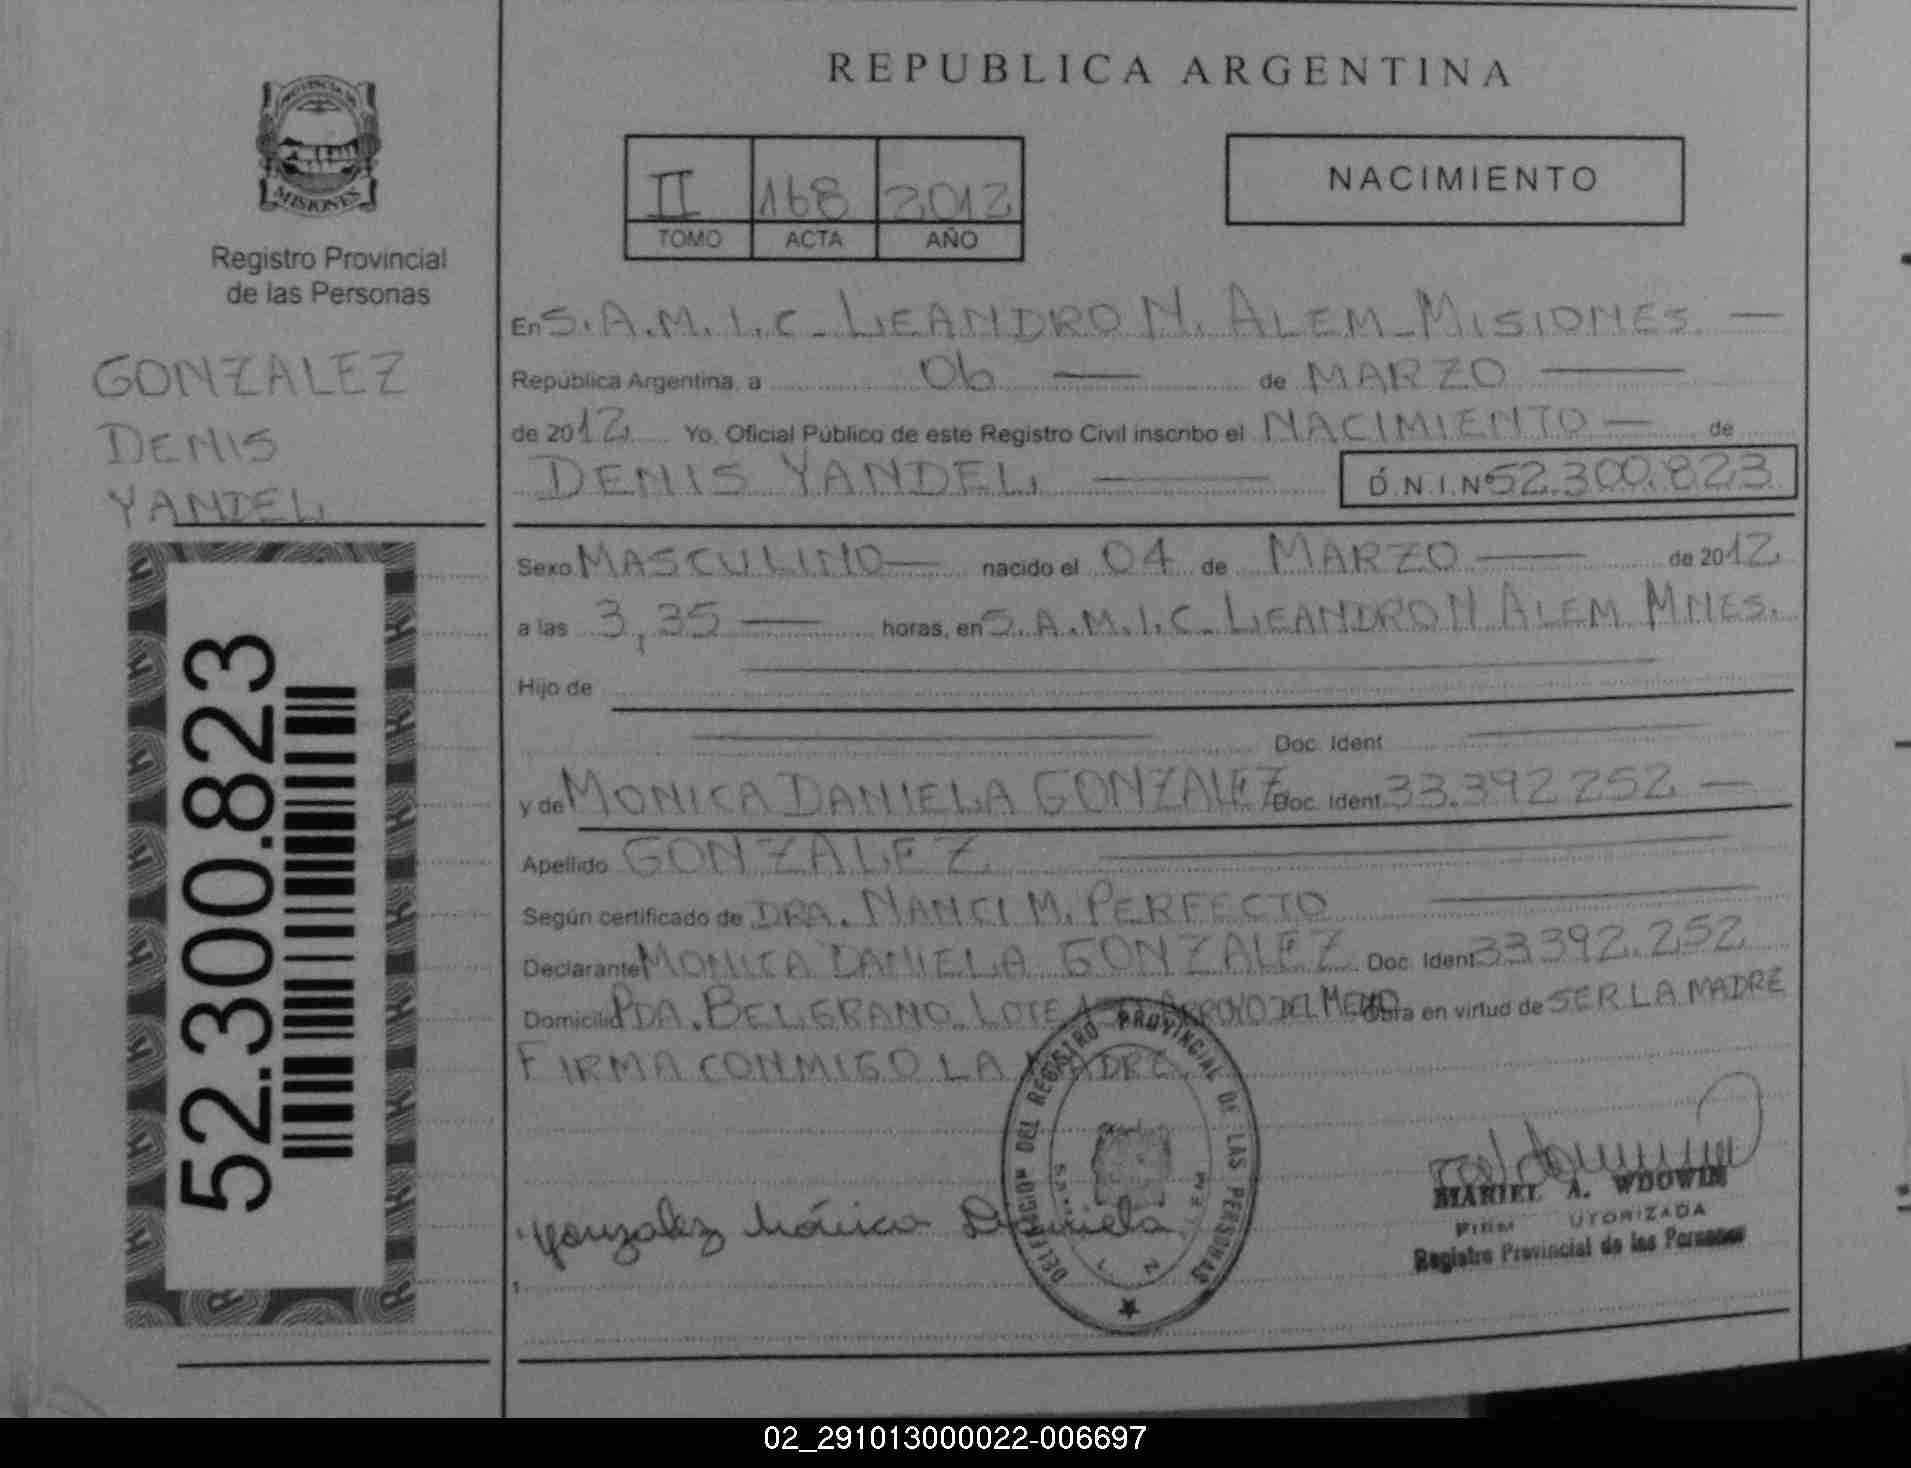 REPUBLICA ARGENTINA
PROVINCIA DE
MISIONES
Registro Provincial
de las Personas
II 168 2012
TOMO ACTA AÑO
NACIMIENTO
GONZALEZ
DENIS
YANDEL
En S.A.M.I.C. LEANDRO N. ALEM MISIONES
República Argentina, a 06 de MARZO
de 2012 Yo, Oficial Público de este Registro Civil inscribo el NACIMIENTO de
DENIS YANDEL D.N.I.Nº 52.300.823
Sexo MASCULINO nacido el 04 de MARZO de 2012
a las 3,35 horas, en S.A.M.I.C. LEANDRO N ALEM MNES.
Hijo de
Doc. Ident
y de MONICA DANIELA GONZALEZ Doc. Ident 33.392.252
Apellido GONZALEZ
Según certificado de DRA. NANCI M. PERFECTO
Declarante MONICA DANIELA GONZALEZ Doc. Ident 33392.252
Domicilio PDA. BELGRANO LOTE ARROYO DEL MEDIO Obra en virtud de SER LA MADRE
FIRMA CONMIGO LA MADRE
52.300.823
DELEGACION DEL REGISTRO PROVINCIAL DE LAS PERSONAS
Gonzalez Mónica Daniela
MARIEL A. WDOWIN
FIRMA AUTORIZADA
Registro Provincial de las Personas
02_291013000022-006697